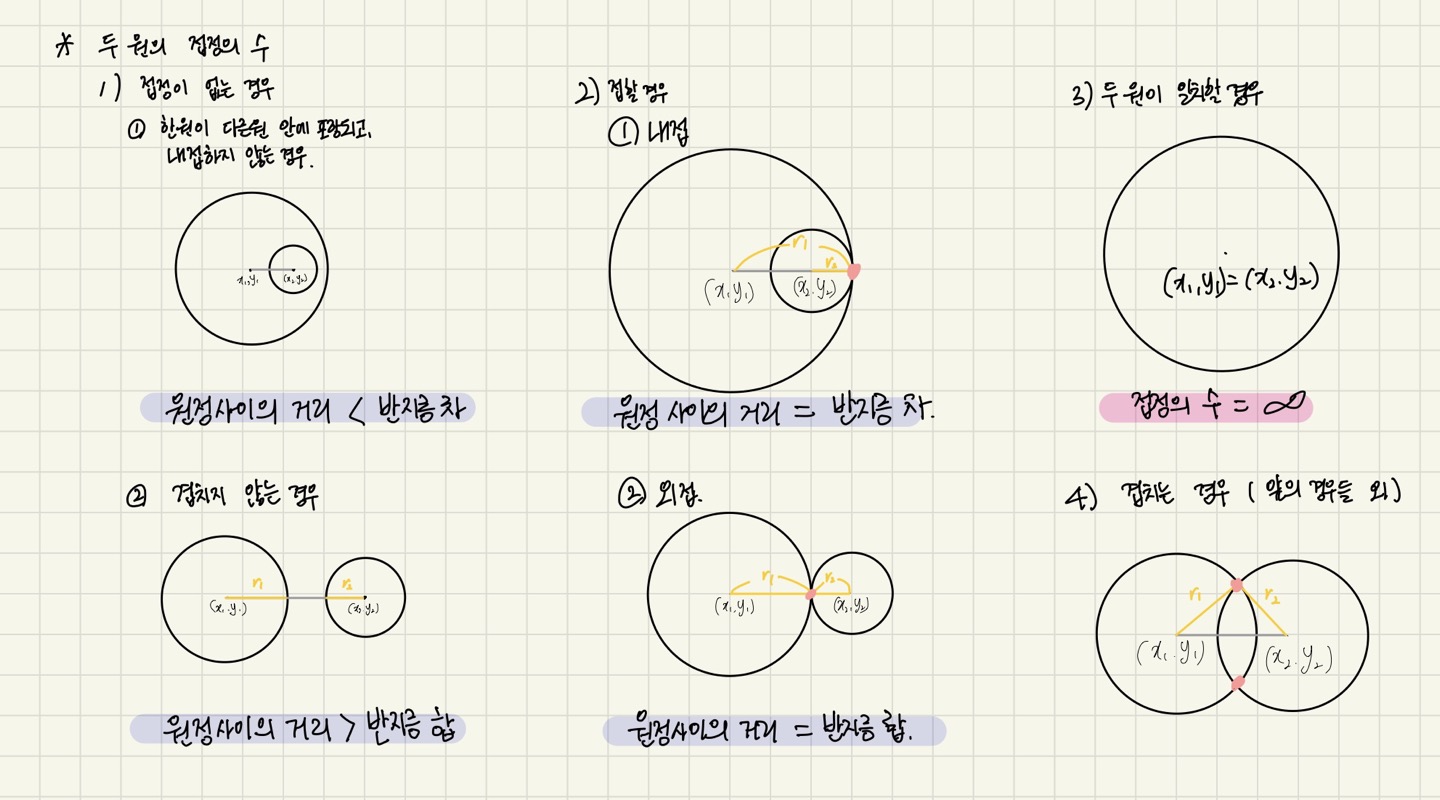 * 두 원의 접점의 수
1) 접점이 없는 경우
① 한원이 다른원 안에 포함되고,
내접하지 않는 경우.
x₁,y₁
(x₂.y₂)
원점사이의 거리 < 반지름 차
② 겹치지 않는 경우
r₁
r₂
(x₁.y₁)
(x₂.y₂)
원점사이의 거리 > 반지름 합
2) 접할 경우
① 내접
r₁
r₂
(x₁.y₁)
(x₂.y₂)
원점 사이의 거리 = 반지름 차.
② 외접.
r₁
r₂
(x₁.y₁)
(x₂,y₂)
원점사이의 거리 = 반지름 합.
3) 두 원이 일치할 경우
(x₁,y₁)=(x₂.y₂)
접점의 수 = ∞
4) 겹치는 경우 ( 앞의 경우들 외 )
r₁
r₂
(x₁.y₁)
(x₂.y₂)